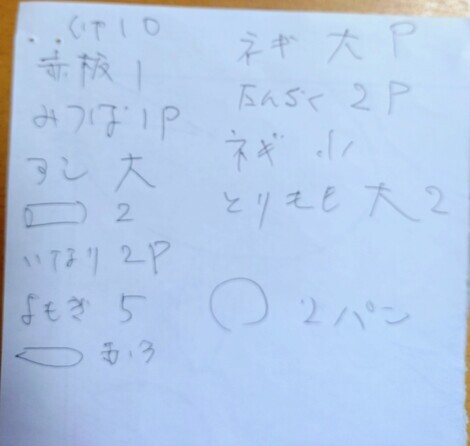 赤板 1
みつば 1P
すし 大
2
いなり 2P
よもぎ 5
ネギ 大 P
2P
ネギ 小
とりもも 大 2
2パン